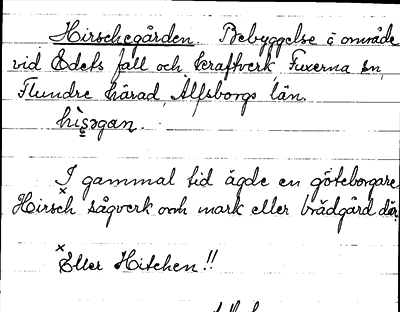 Hirschegården. Bebyggelse i område
vid Edets fall och kraftverk, Fuxerna sn,
Flundre härad, Älfsborgs län.
hìs̯əgan.
I gammal tid ägde en göteborgare
ˣHirsch sågverk och mark eller brädgård där.
ˣEller Hitchen!!